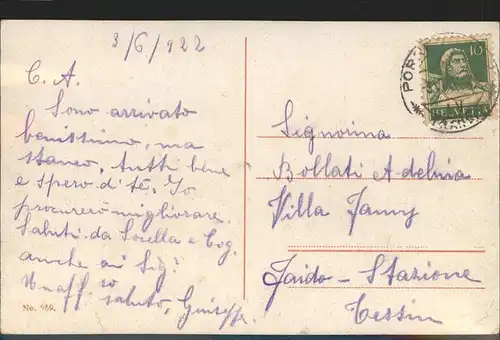 3/6/922
C. A.
Sono arrivato
benissimo, ma
stanco, tutti bene
e spero di té. Io
procurerò migliorare.
Saluti da Sorella e Cog.
anche ai Sig.i
Un aff.so saluto, Giuseppe
No. 989.
10
HELVETIA
POR
Signorina
Bollati Adelina
Villa Jamy
Faido - Stazione
Tessin